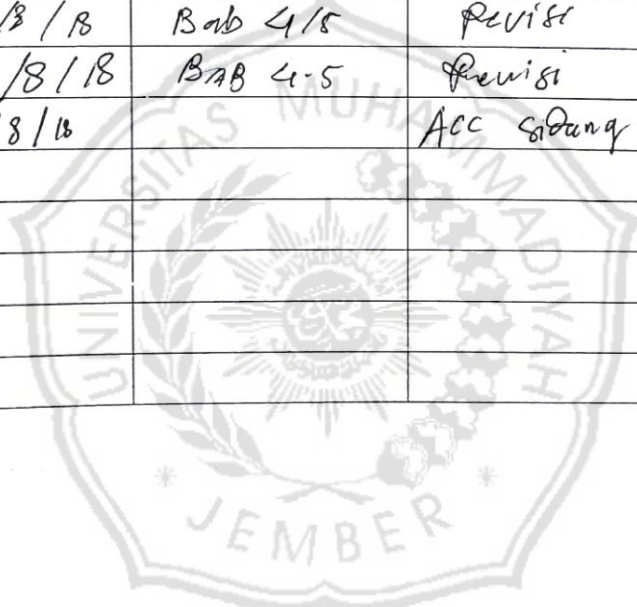 /8 / 18 Bab 4/5 Revisi
/8/18 BAB 4-5 Revisi
8/18
ACC sidang
UNIVERSITAS MUHAMMADIYAH
JEMBER